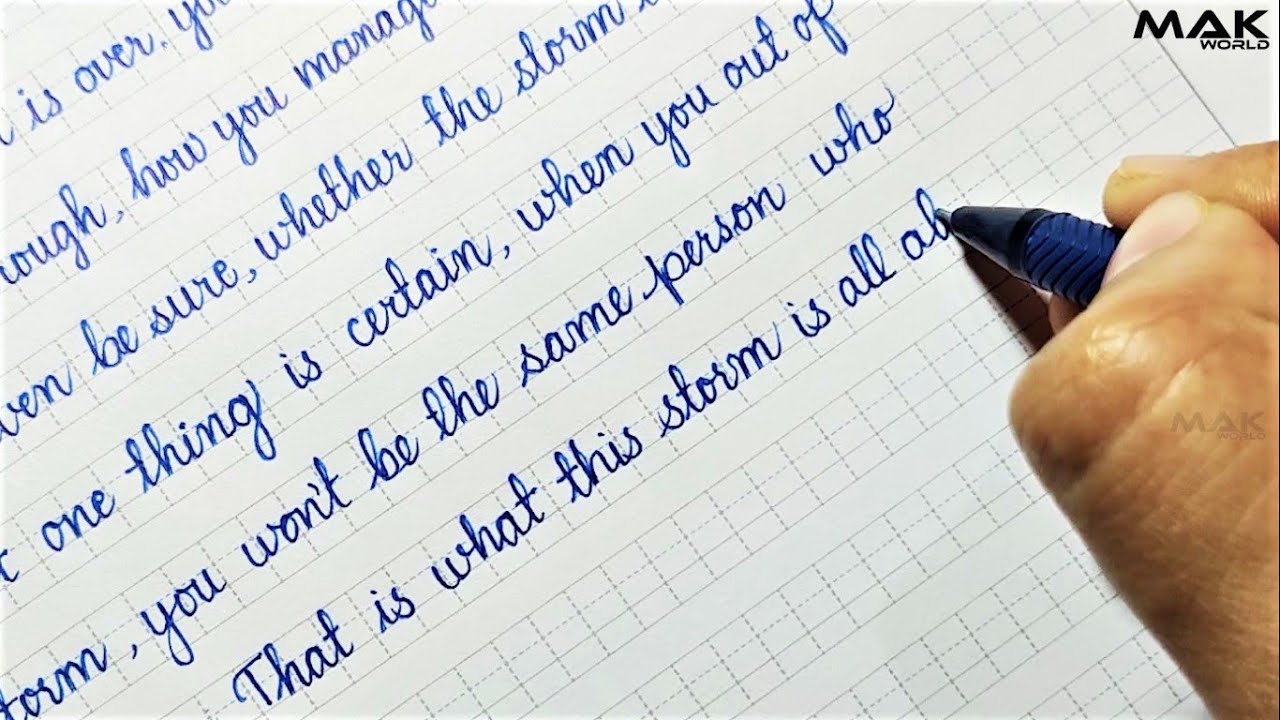 MAK
WORLD
is over. yo
rough, how you manag
ven be sure, whether the storm
one thing is certain, when you out of
torm, you won't be the same person who
That is what this storm is all ab
MAK
WORLD